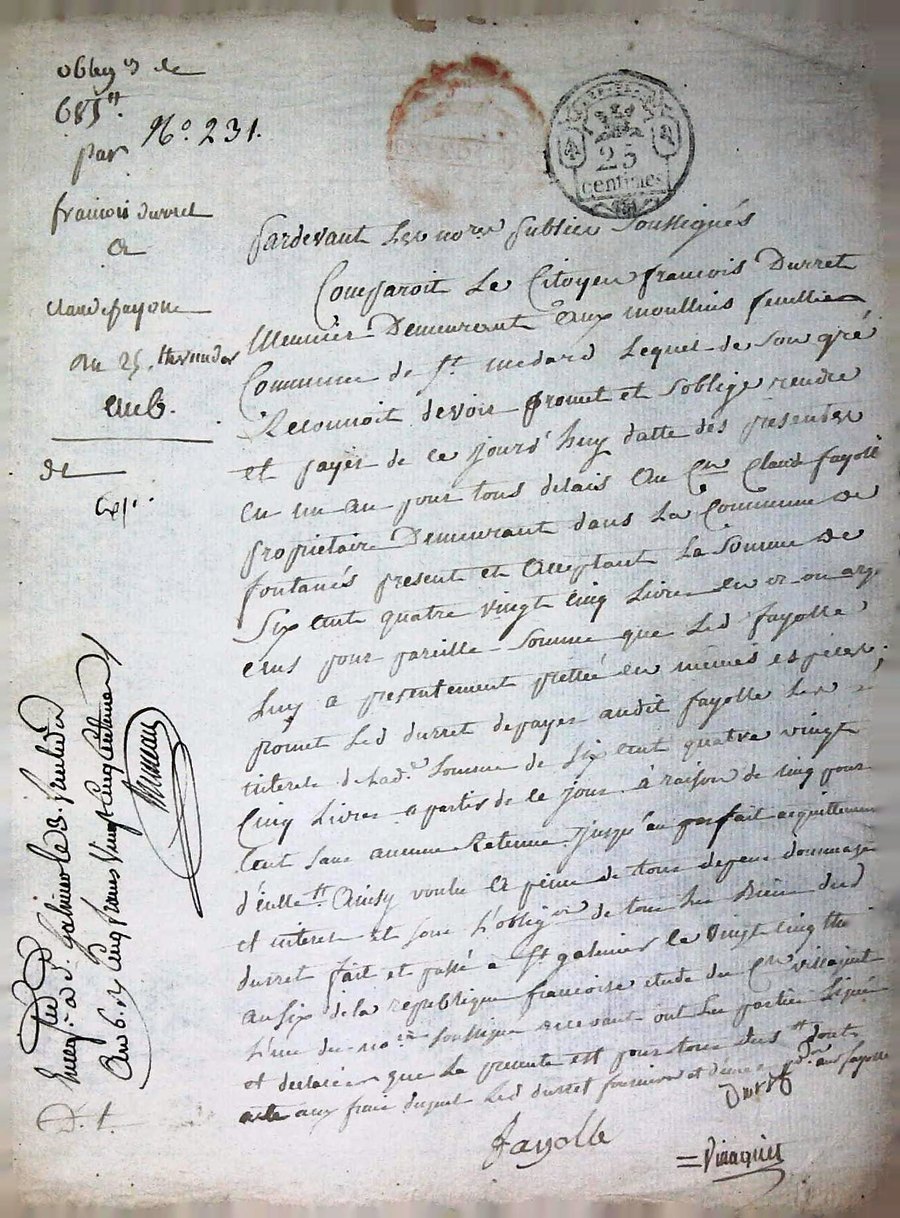 oblig on de
685 tt
N.o 231.
par
francois durret
a
claude fayolle
du 25. thermidor
an 6.
de
Exp.
25
centimes
Pardevant Les no.res publics Soussignés
Comparoit Le Citoyen francois Durret
Meunier Demeurant aux moullins feuillien
Commune de St. medard Lequel de Son gré
Reconnoit devoir promet et Soblige rendre
et payer de ce jourd'huy datte des presentes
en un an pour tous delais Au C.en Claude fayolle
propriétaire Demeurant dans La Commune de
fontanés present et acceptant La Somme de
Six cent quatre vingt cinq Livres en or ou arg.
pour pareille Somme que Led fayolle
Luy a presentement prettée en mêmes especes;
promet Led durret depayer audit fayolle Les
interets de Lad.e Somme de Six cent quatre vingt
Cinq Livres a partir de ce jour à raison de cinq pour
Cent Sans aucune Retenue jusqu'au parfait acquittement
d'icelle tt. Ainsy voulu A peine de tous depens dommages
et interets et sous L'oblig.on de tous Les Biens dud
durret fait et passé a St galmier le vingt cinq ther
an Six de la republique francoise etude du C.en
L'un des no.res Soussignés recevant ont Les parties Signé
et declaré que La presente est pour tous dus tt dont
acte aux frais duquel Led durret fournira aud fayolle
Durret
Fayolle
Enreg. à St. Galmier le
an 6. Cinq francs vingt cinq Centimes